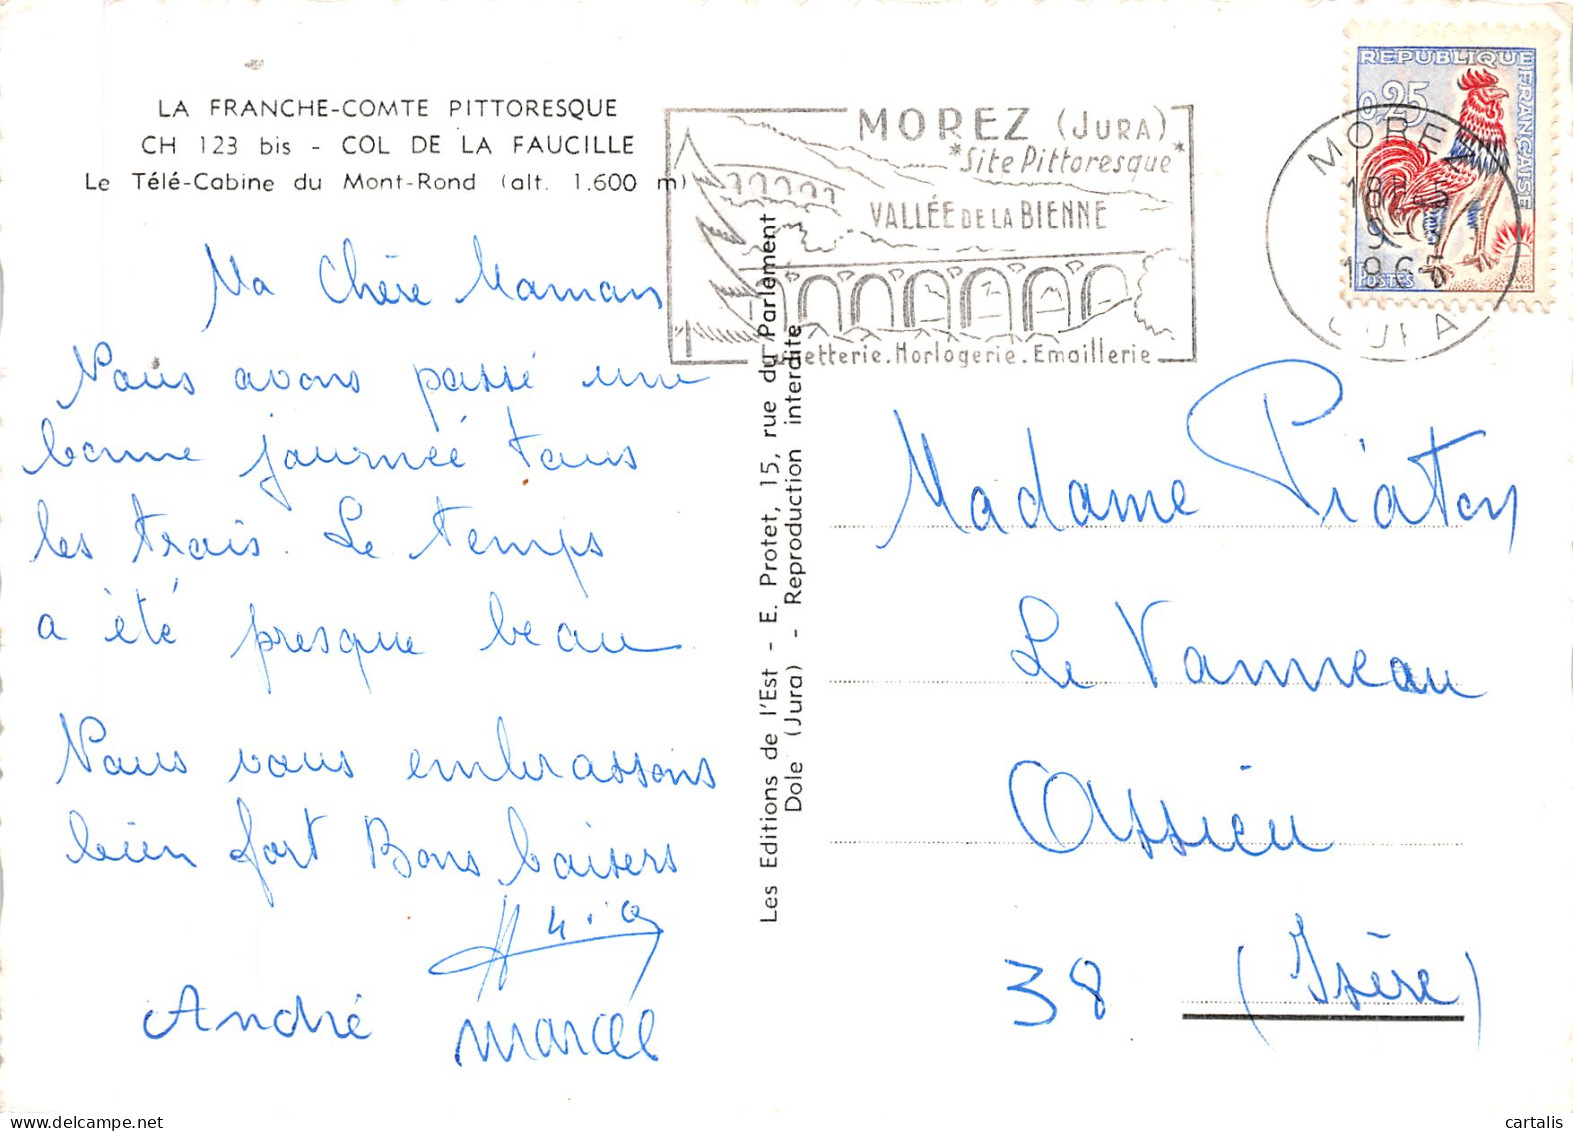 LA FRANCHE-COMTE PITTORESQUE
CH 123 bis - COL DE LA FAUCILLE
Le Télé-Cabine du Mont-Rond (alt. 1.600 m)
Ma Chère Maman
Nous avons passé une
bonne journée tous
les trois. Le temps
a été presque beau
Nous vous embrassons
bien fort Bons baisers
André Marcel
Les Editions de l'Est - E. Protet, 15, rue du Parlement
Dole (Jura) - Reproduction interdite
MOREZ (JURA)
*Site Pittoresque*
VALLÉE DE LA BIENNE
etterie. Horlogerie. Emaillerie
MOREZ
18H
9-
196
JURA
REPUBLIQUE FRANÇAISE
0,25
POSTES
Madame Piaton
Le Vanneau
Assieu
38 (Isère)
cartalis